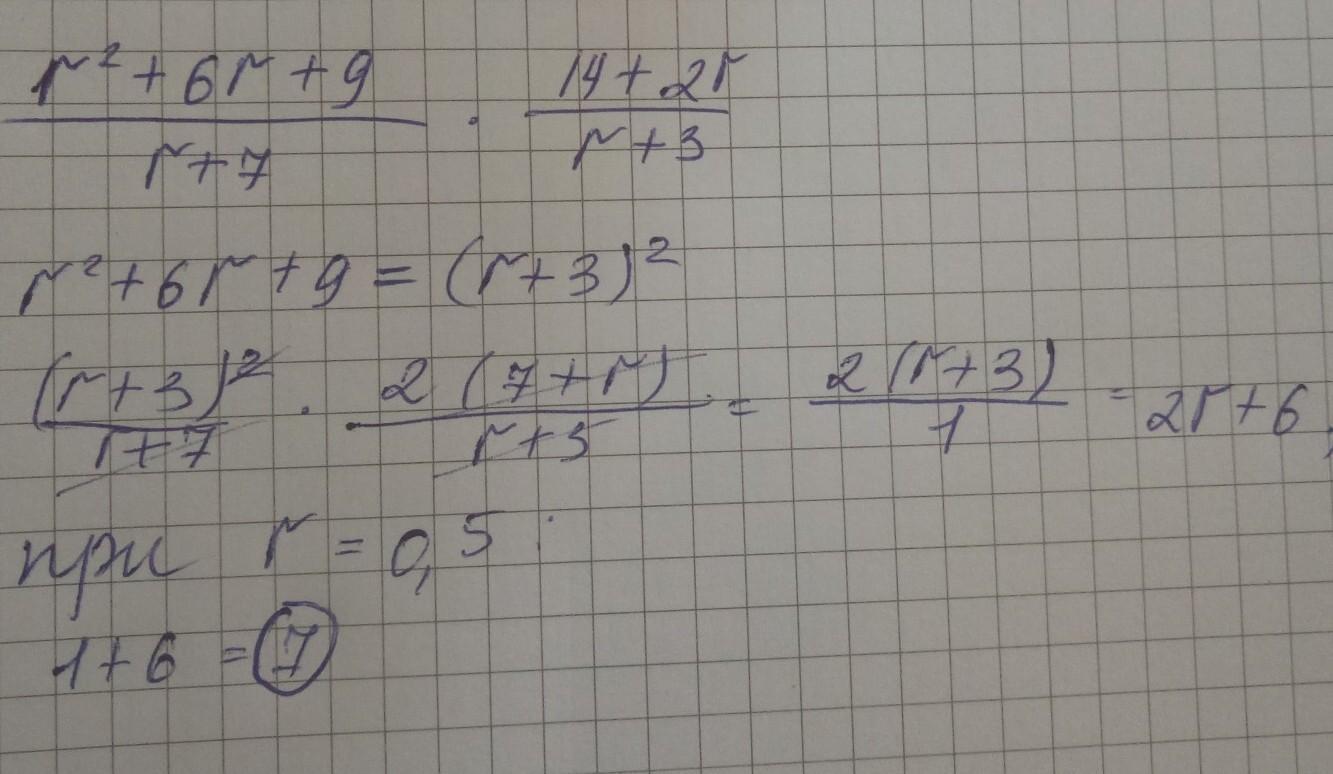 (r² + 6r + 9)/(r + 7) · (14 + 2r)/(r + 3)
r² + 6r + 9 = (r + 3)²
(r + 3)²/(r + 7) · 2(7 + r)/(r + 3) = 2(r + 3)/1 = 2r + 6,
при r = 0,5 :
1 + 6 = 7